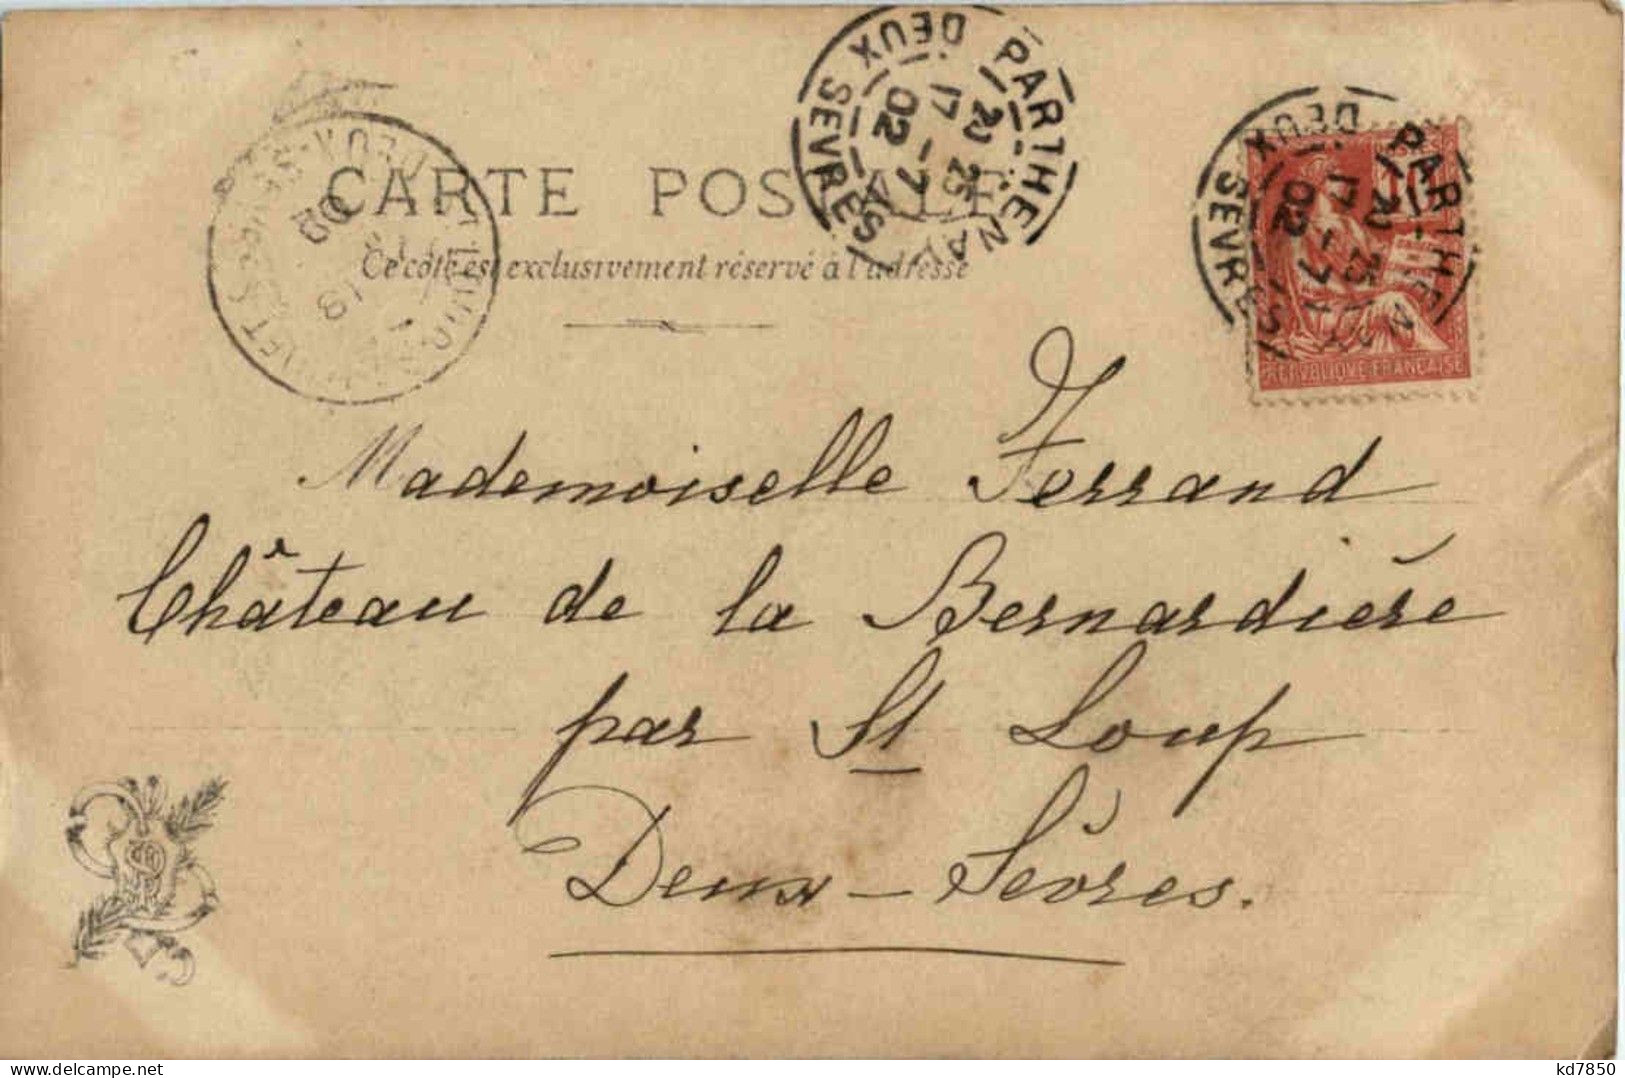 CARTE POSTALE
Ce côté est exclusivement réservé à l'adresse
PARTHENAY
DEUX SÈVRES
20 25
17 - 7
02
PARTHENAY
DEUX SÈVRES
20 25
17 - 7
02
10
REPUBLIQUE FRANÇAISE
DEUX-SÈVRES
18
02
Mademoiselle Y. Ferrand
Château de la Bernardière
par St Loup
Deux-Sèvres.
kd7850